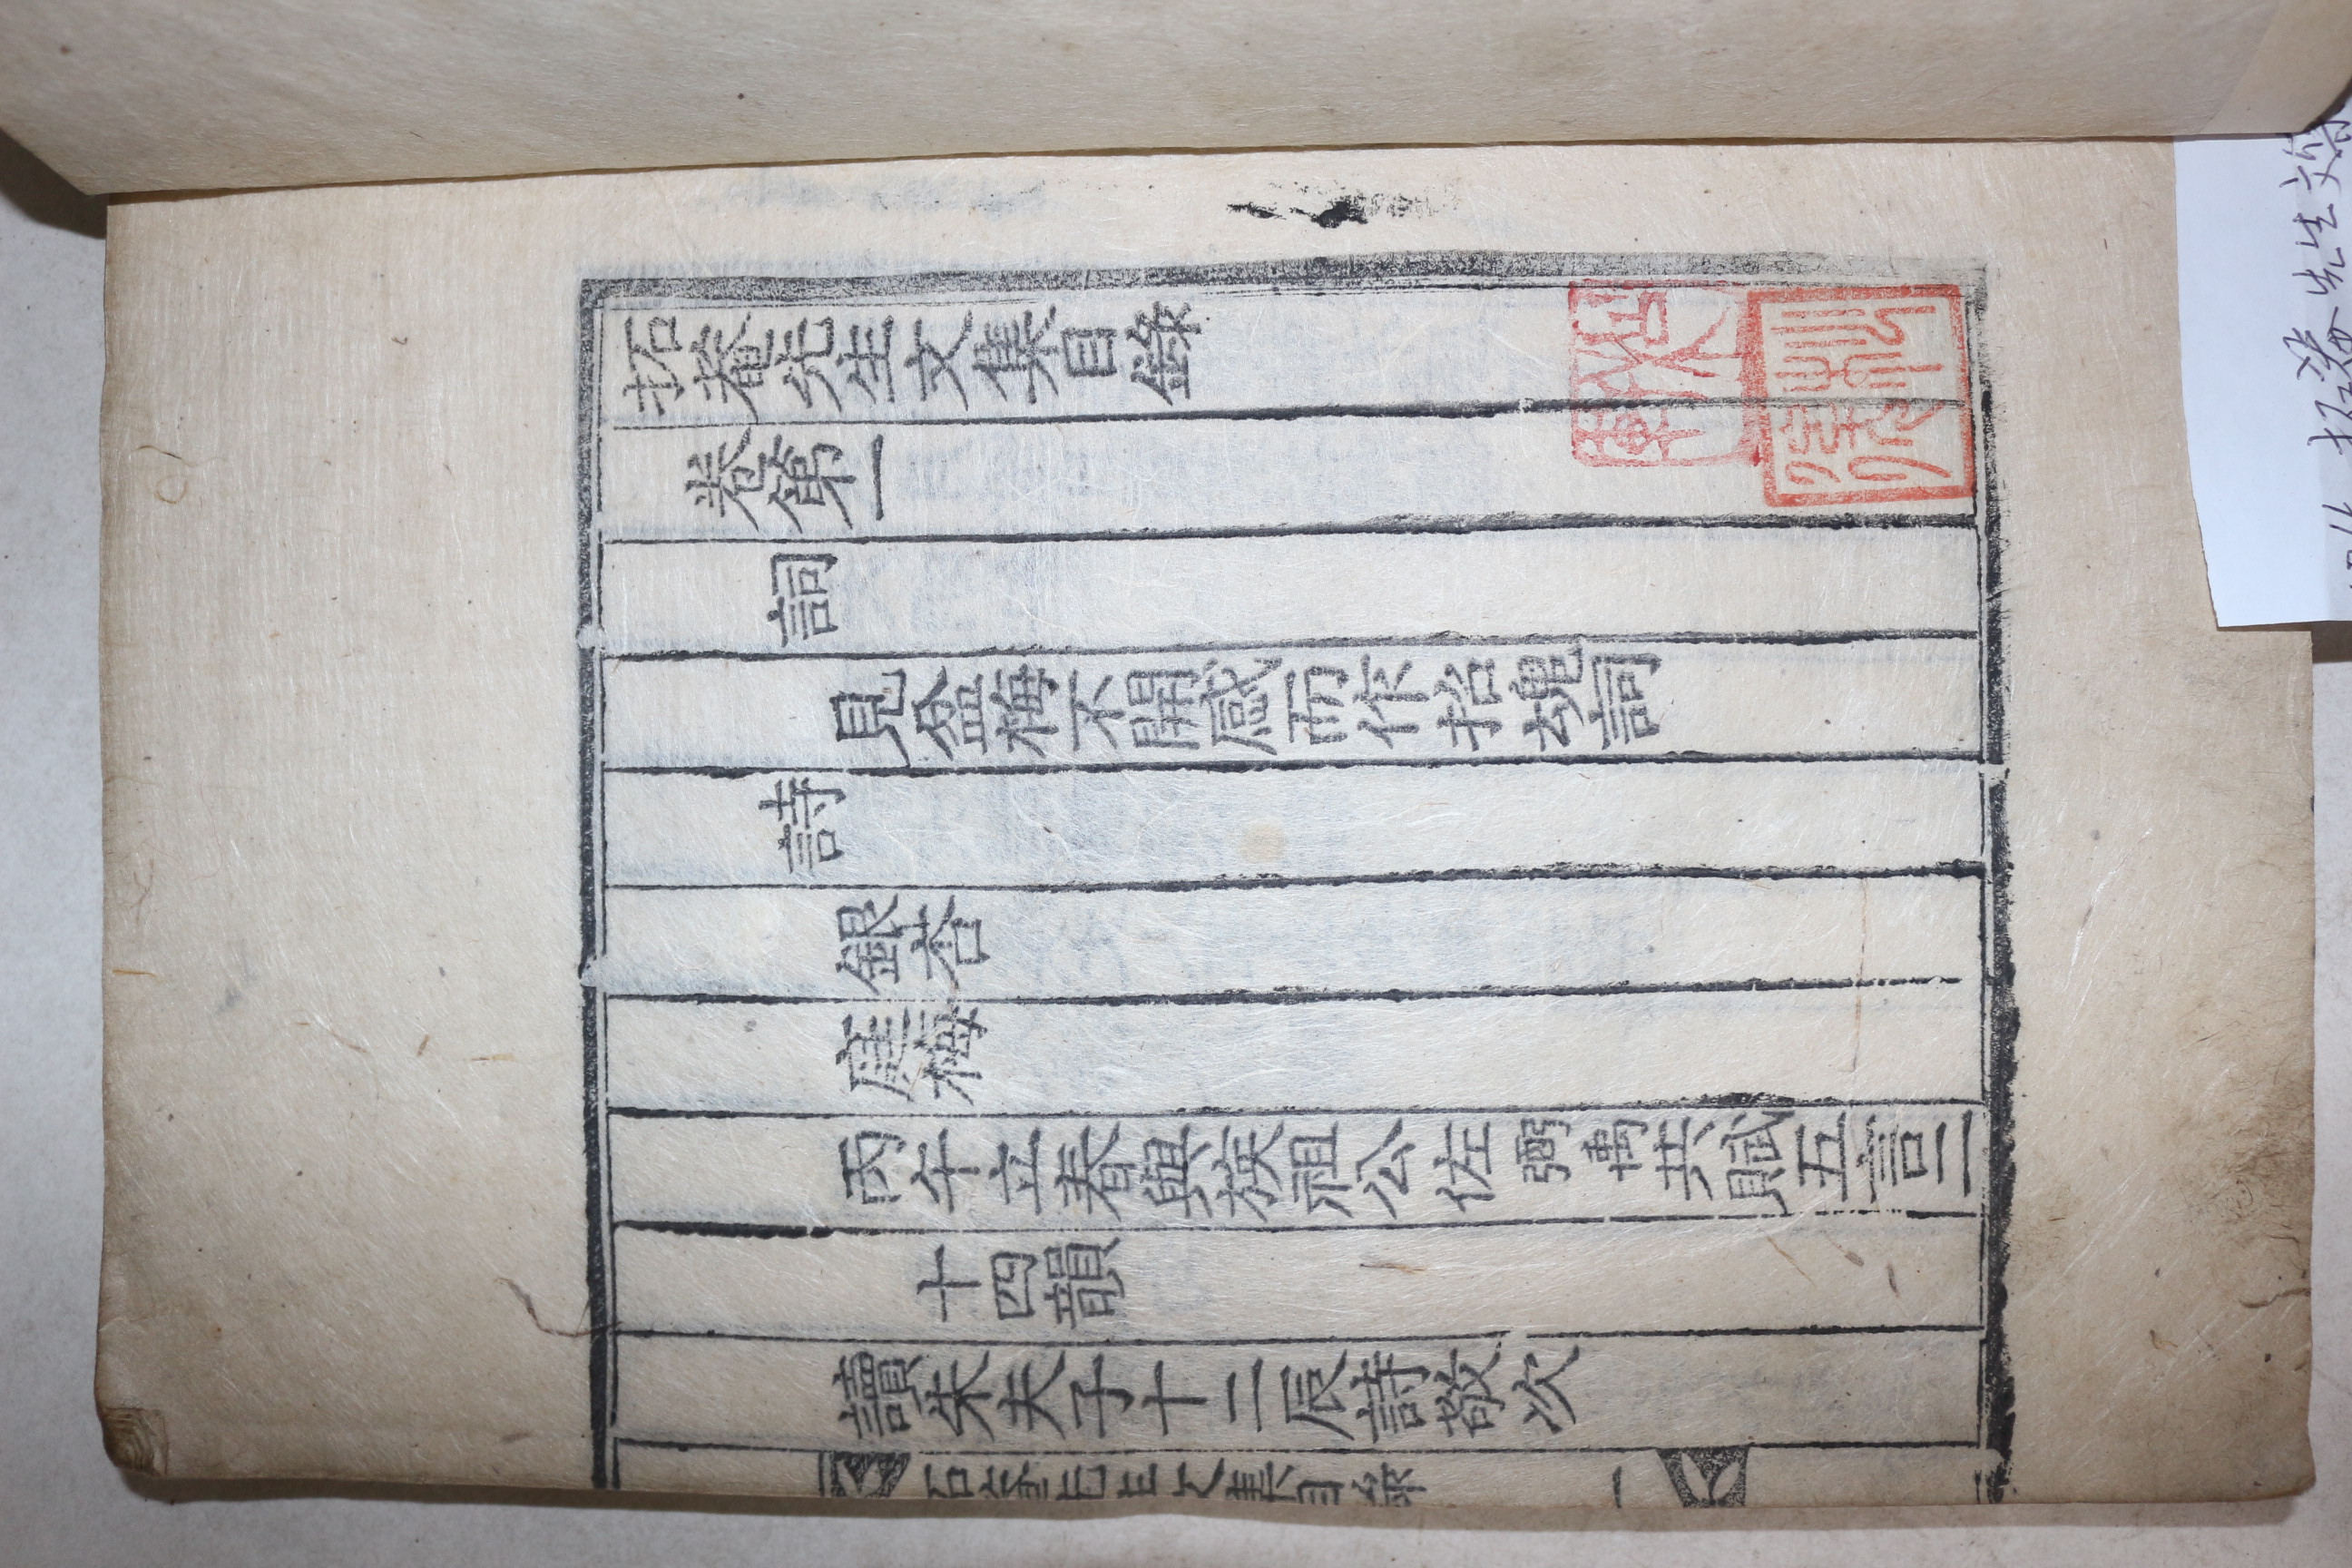 拓菴先生文集目錄
卷第一
詞
見盆梅不開感而作招魂詞
詩
銀杏
庭梅
丙午立春與族祖公佐弼夢共賦五言二
十四韻
讀朱夫子十二辰詩敬次
拓菴先生文集目錄 一
先生文集